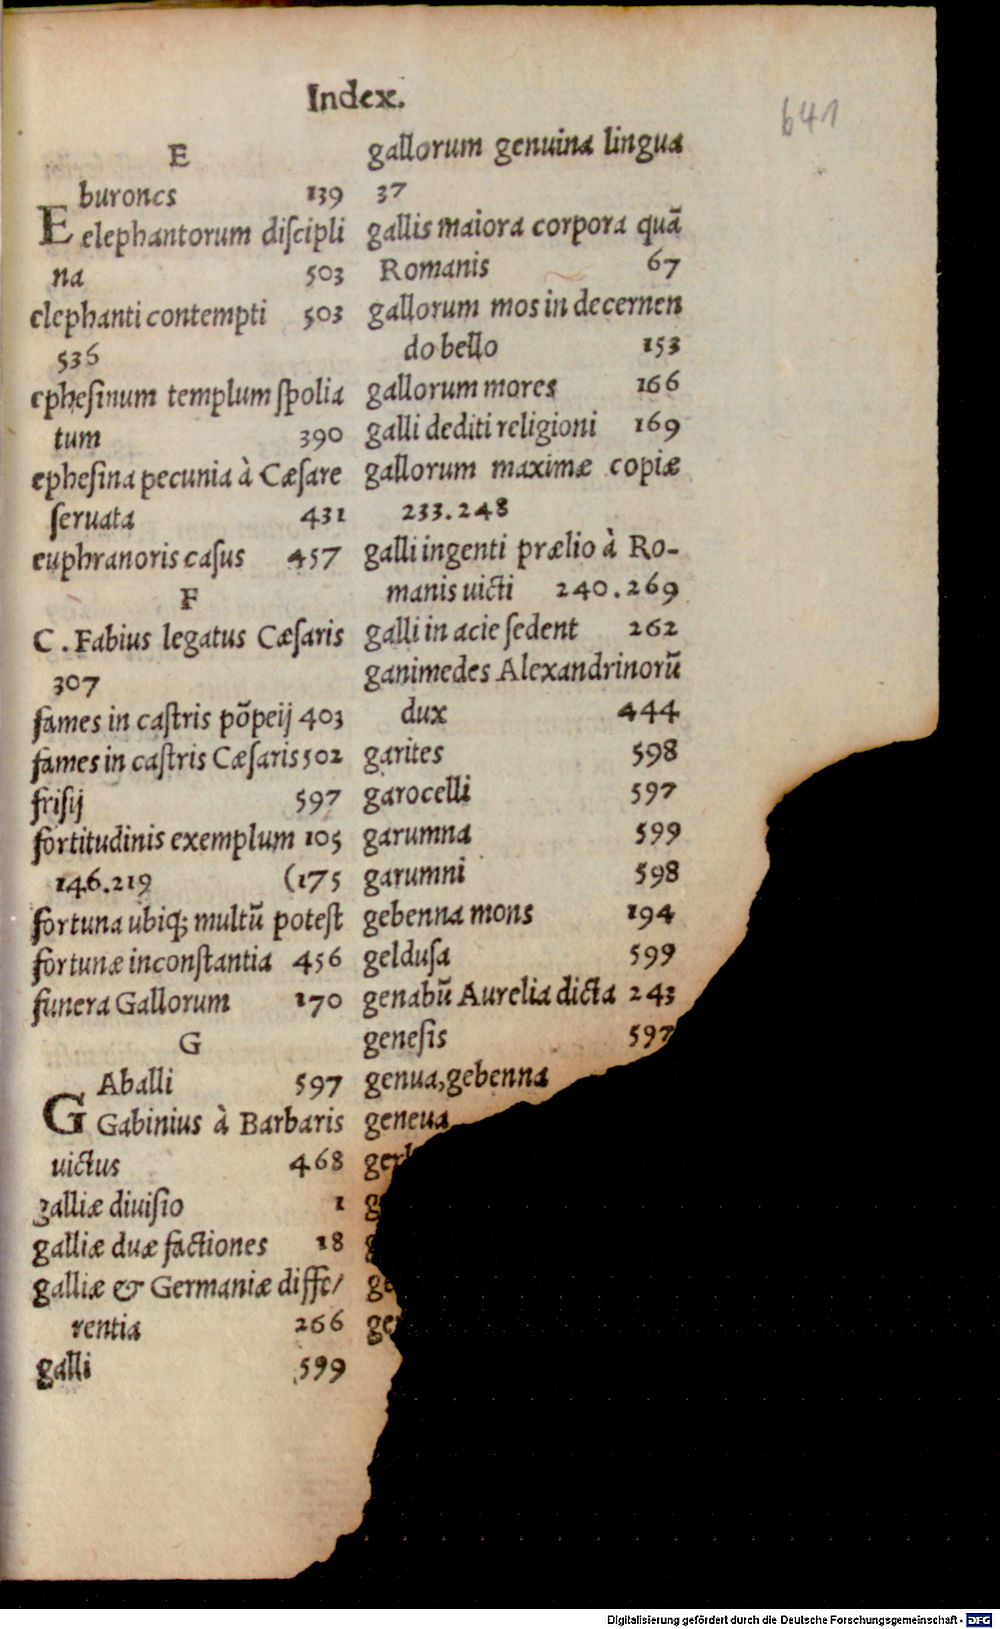 Index.
641
E
Eburones 139
elephantorum discipli
na 503
elephanti contempti 503
536
ephesinum templum spolia
tum 390
ephesina pecunia à Cæsare
seruata 431
euphranoris casus 457
F
C. Fabius legatus Cæsaris
307
fames in castris põpeij 403
fames in castris Cæsaris 502
frisij 597
fortitudinis exemplum 105
146.219 (175
fortuna ubiq; multū potest
fortunæ inconstantia 456
funera Gallorum 170
G
GAballi 597
Gabinius à Barbaris
uictus 468
galliæ diuisio 1
galliæ duæ factiones 18
galliæ & Germaniæ diffe/
rentia 266
galli 599
gallorum genuina lingua
37
gallis maiora corpora quā
Romanis 67
gallorum mos in decernen
do bello 153
gallorum mores 166
galli dediti religioni 169
gallorum maximæ copiæ
233.248
galli ingenti prælio à Ro-
manis uicti 240.269
galli in acie sedent 262
ganimedes Alexandrinorū
dux 444
garites 598
garocelli 597
garumna 599
garumni 598
gebenna mons 194
geldusa 599
genabū Aurelia dicta 243
genesis 597
genua, gebenna
geneua
Digitalisierung gefördert durch die Deutsche Forschungsgemeinschaft - DFG